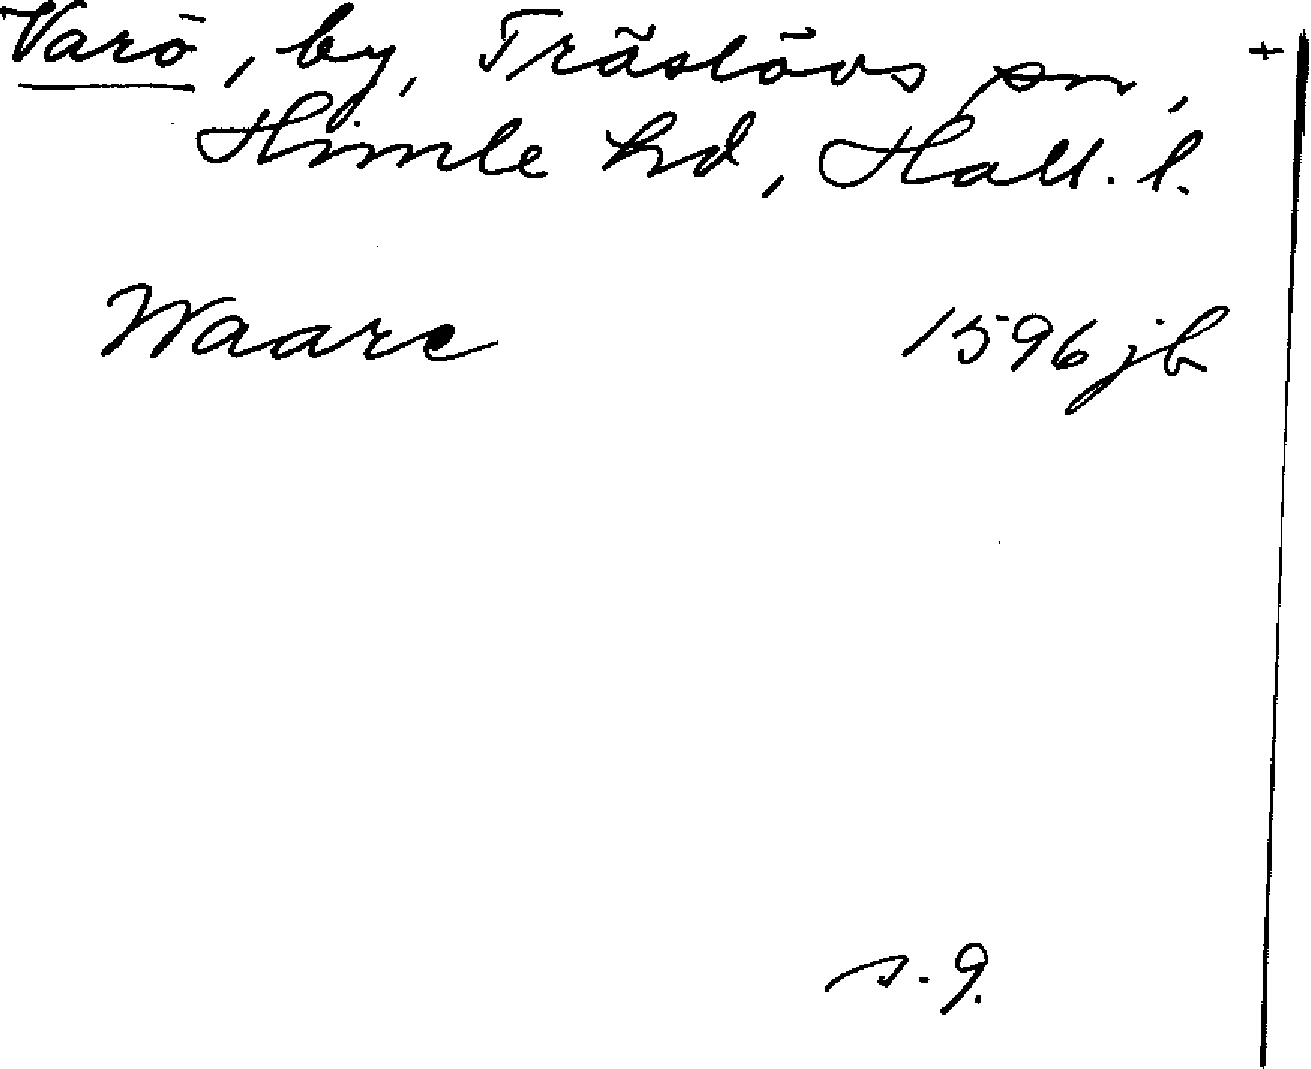 Varö, by, Träslövs sn, +
Himle hd, Hall. l.
Waare 1596 jb
s. 9.